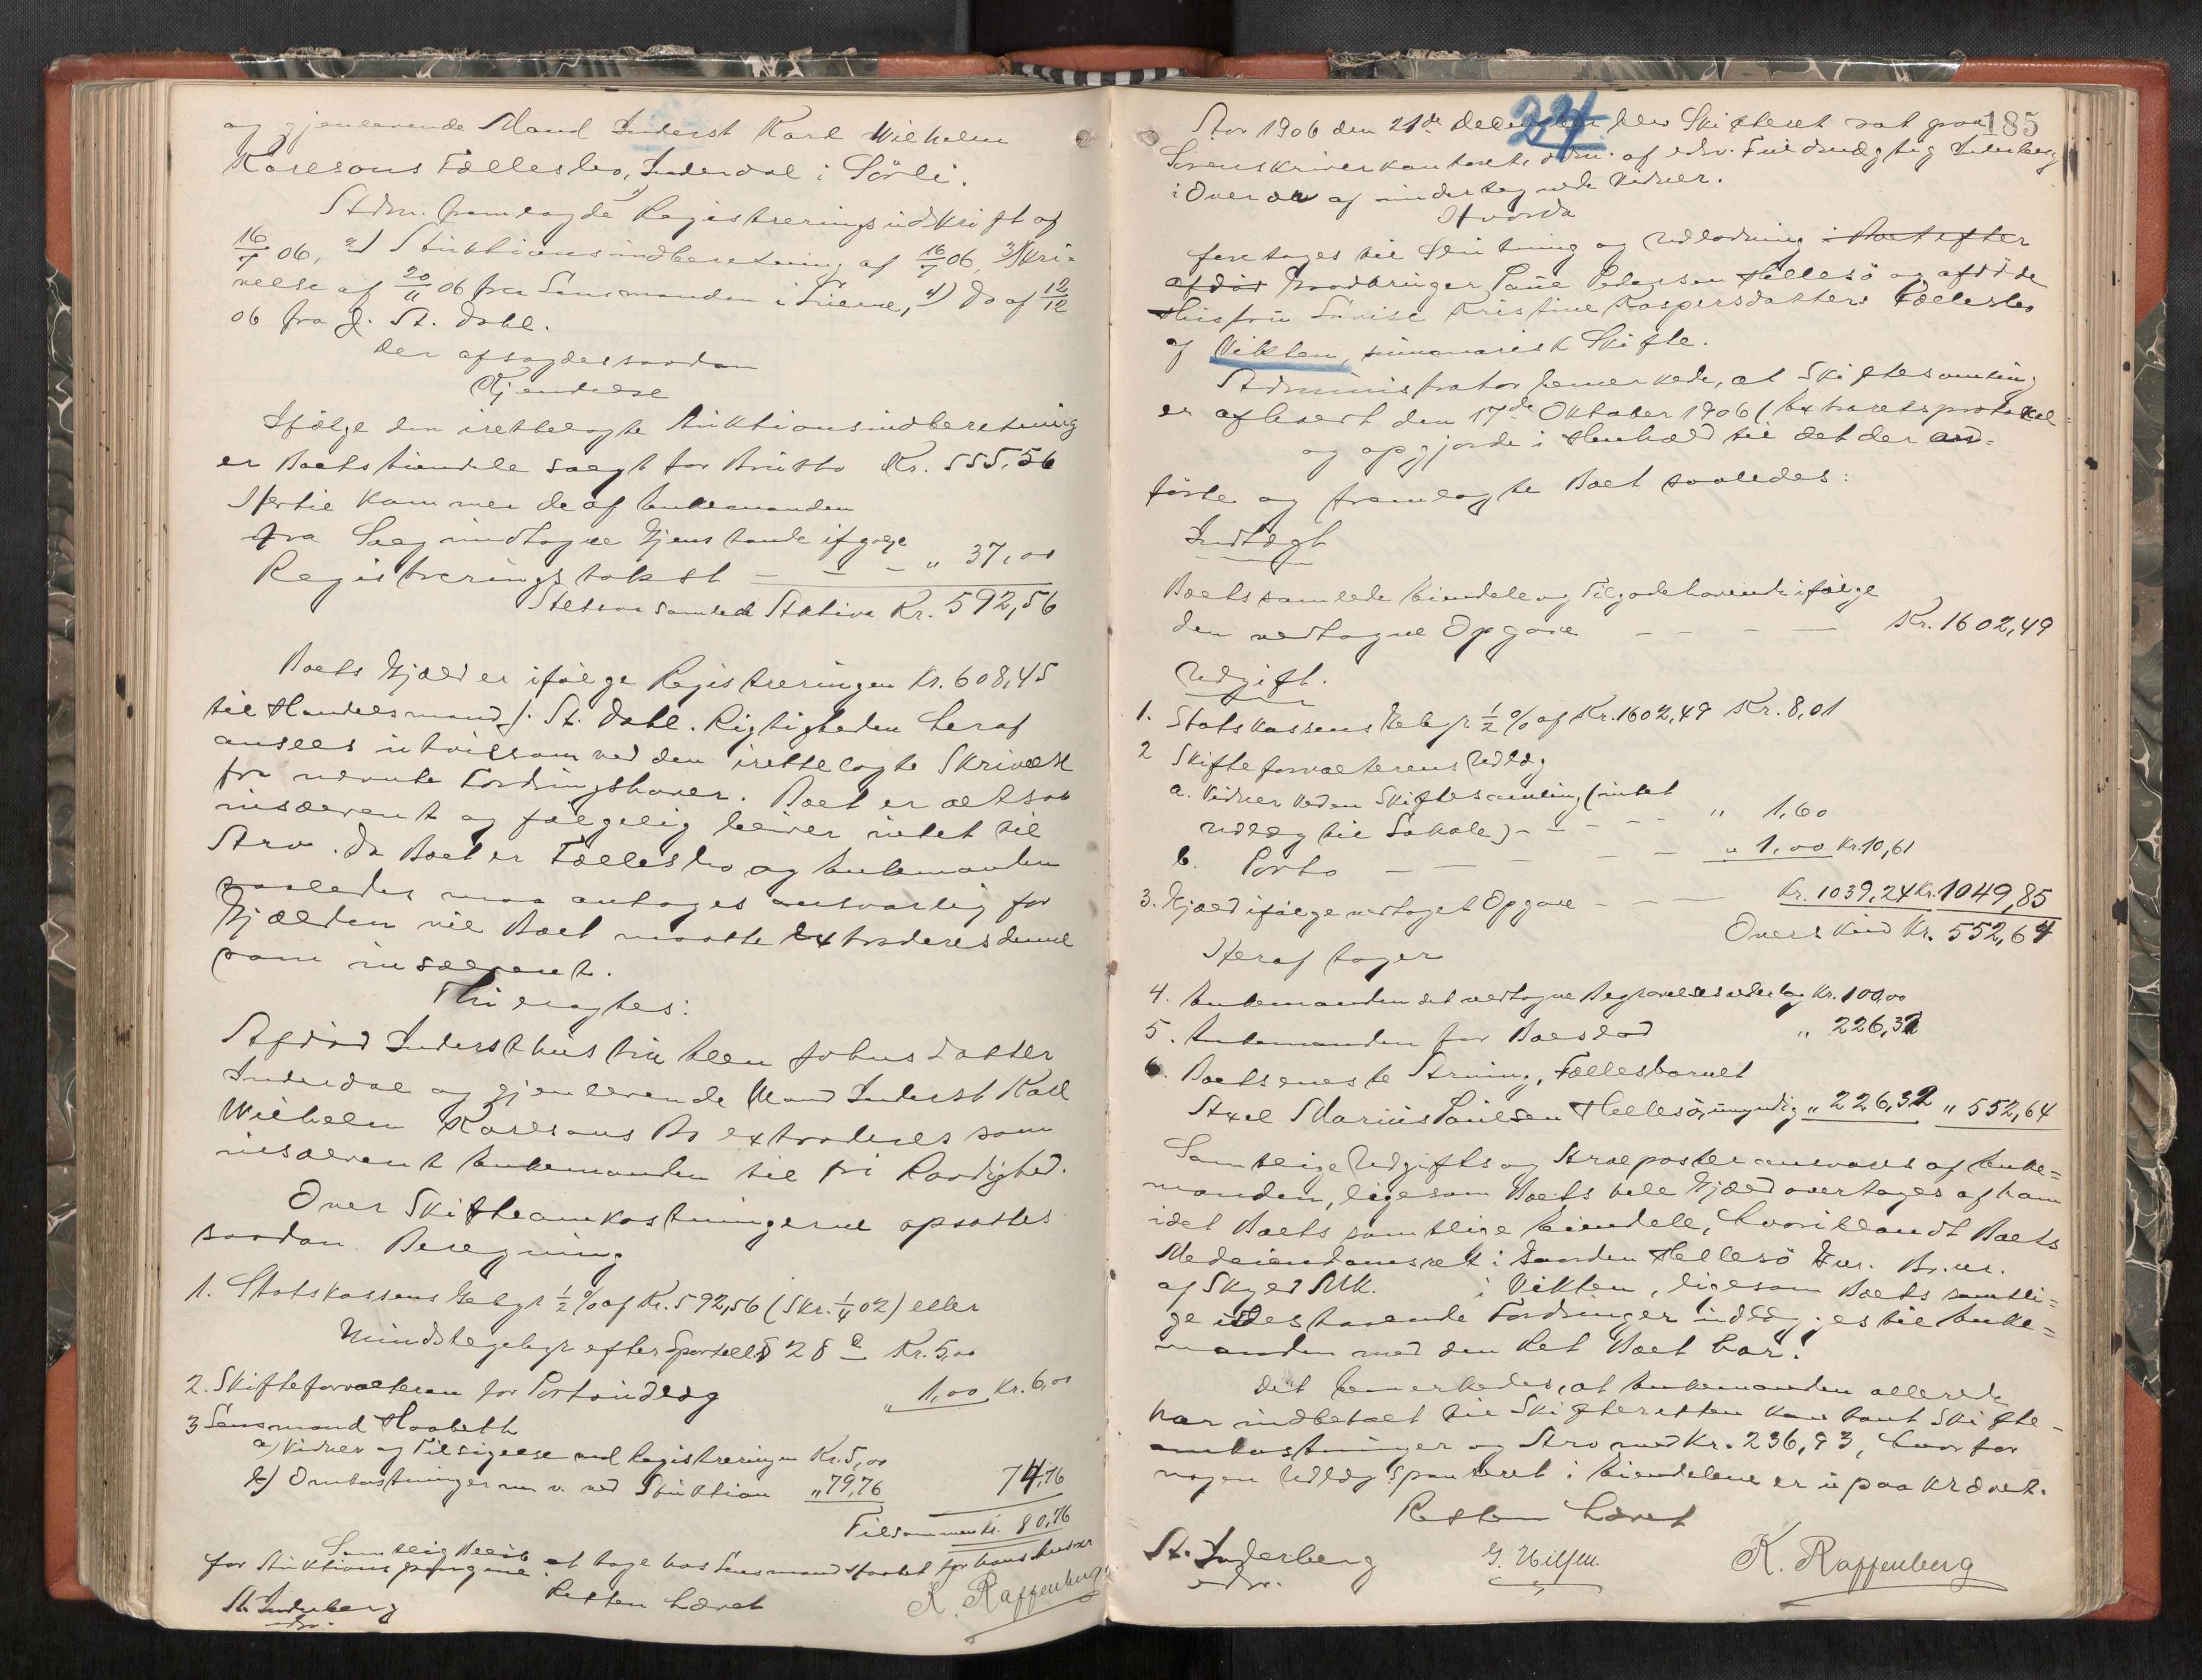 og gjenlevende Mand Inderst Karl Wilhelm
Karlsons Fællesbo, Inderdal i Sörli.
Adm. fremlagde 1) Registreringsudskrift af
16/7 06, 2) Auktionsindberetning af 16/7 06, 3) Skri-
velse af 20/11 06 fra Lensmanden i Lierne, 4) Do af 12/12
06 fra J. St. Dahl.
Der afsagdes saadan
Kjendelse
Ifølge den irettelagte Auktionsindberetning
er Boets Eiendele solgt for Brutto Kr. 555,56
Hertil kommer de af Enkemanden
fra Salg undtagne Gjenstande ifølge
Registreringstakst — — — " 37,00
Altsaa samlede Aktiva Kr. 592,56
Boets Gjæld er ifølge Registreringen Kr. 608,45
til Handelsmand J. St. Dahl. Rigtigheden heraf
ansees utvilsom ved den irettelagte Skrivelse
fra nævnte Fordringshaver. Boet er altsaa
insolvent og følgelig bliver intet til
Arv. Da Boet er Fællesbo og Enkemanden
saaledes maa antages ansvarlig for
Gjælden vil Boet maatte extraderes denne
som insolvent.
Thi eragtes:
Afdød Indersthustru Ellen Johnsdatter
Inderdal og gjenlevende Mand Inderst Karl
Wilhelm Karlsons Bo extraderes som
insolvent Enkemanden til fri Raadighed.
Over Skifteomkostningerne opsattes
saadan Beregning
1. Statskassens Gebyr 1/2 % af Kr. 592,56 (Skr. 1/4 02) eller
Mindstegebyr efter Sportell. § 28 Kr. 5,00
2. Skifteforvalteren for Portoudlæg " 1,00 Kr. 6,00
3 Lensmand
a) Vidner og Tilsigelse ved Registreringen Kr. 5,00
b) Omkostninger m. v. ved Auktion " 79,76 74,76
Tilsammen Kr. 80,76
Samtlig Beløb at tage hos Lensmand for hans
for Auktionspengene.
Retten hævet
St. Inderberg K. Raffenberg
edsv.
185
24
Aar 1906 den 21de December blev Skifteret sat paa
Sorenskriverkontoret, adm. af edsv. Fuldmægtig Inderberg
i Overvær af undertegnede Vidner.
Hvorda
foretages til Slutning og Udlodning i Boet efter
afdød Gaardbruger Paul Pedersen Hellesö og afdøde
Hustru Lovise Kristine Kaspersdatters Fællesbo
af Vikten, summarisk Skifte.
Administrator bemerkede, at Skiftesamling
er afholdt den 17de Oktober 1906 (Extraretsprotokol-
og opgjorde i Henhold til det der an-
førte og fremlagte Boet saaledes:
Indtægt
Boets samlede Eiendele og Tilgodehavende ifølge
den vedtagne Opgave — — — — Kr. 1602,49
Udgift.
1. Statskassens Gebyr 1/2 % af Kr. 1602,49 Kr. 8,01
2 Skifteforvalterens Udlæg
a. Vidner ved en Skiftesamling (intet
Udlæg til Lokale) — — — — " 1,60
b. Porto — — — — " 1,00 Kr. 10,61
3. Gjæld ifølge vedtaget Opgave — — — Kr. 1039,24 Kr. 1049,85
Overskud Kr. 552,64
Heraf tager
4. Enkemanden det vedtagne Begravelsesudlæg Kr. 100,00
5. Enkemanden for Boeslod " 226,32
6. Boets eneste Arving, Fællesbarnet
Axel Marius Paulsen Hellesö, umyndig " 226,32 " 552,64
Samtlige Udgifts og Arveposter ansvares af Enke-
manden, ligesom Boets hele Gjæld overtages af ham
idet Boets samtlige Eiendele, hvoriblandt Boets
Medeiendomsret i Gaarden Hellesö Gnr. Br. nr.
af Skyld Mk. i Vikten, ligesom Boets samtli-
ge udestaaende Fordringer udlægges til Enke-
manden med den Ret Boet har.
Det bemerkedes, at Enkemanden allerede
har indbetalt til Skifteretten kontant Skifte-
omkostninger og Arv med Kr. 236,93, hvorfor
nogen Udlægspanteret i Eiendelene er upaakrævet.
Retten hævet
St. Inderberg K. Raffenberg
edsv.